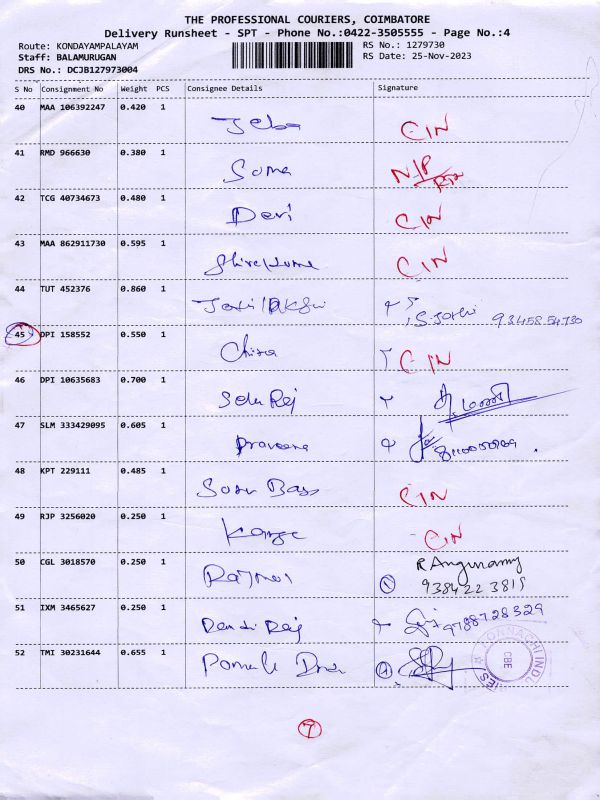 THE PROFESSIONAL COURIERS, COIMBATORE
Delivery Runsheet - SPT - Phone No.:0422-3505555 - Page No.:4
Route: KONDAYAMPALAYAM RS No.: 1279730
Staff: BALAMURUGAN RS Date: 25-Nov-2023
DRS No.: DCJB127973004
S No Consignment No Weight PCS Consignee Details Signature
40 MAA 106392247 0.420 1
Jeba CIN
41 RMD 966630 0.380 1
Soma N/P
42 TCG 40734673 0.480 1
Devi CIN
43 MAA 862911730 0.595 1
CIN
44 TUT 452376 0.860 1
93458 54730
45 DPI 158552 0.550 1
Chitra CIN
46 DPI 10635683 0.700 1
47 SLM 333429095 0.605 1
Praveena
48 KPT 229111 0.485 1
CIN
49 RJP 3256020 0.250 1
CIN
50 CGL 3018570 0.250 1
9384223815
51 IXM 3465627 0.250 1
9788728329
52 TMI 30231644 0.655 1
CBE
7